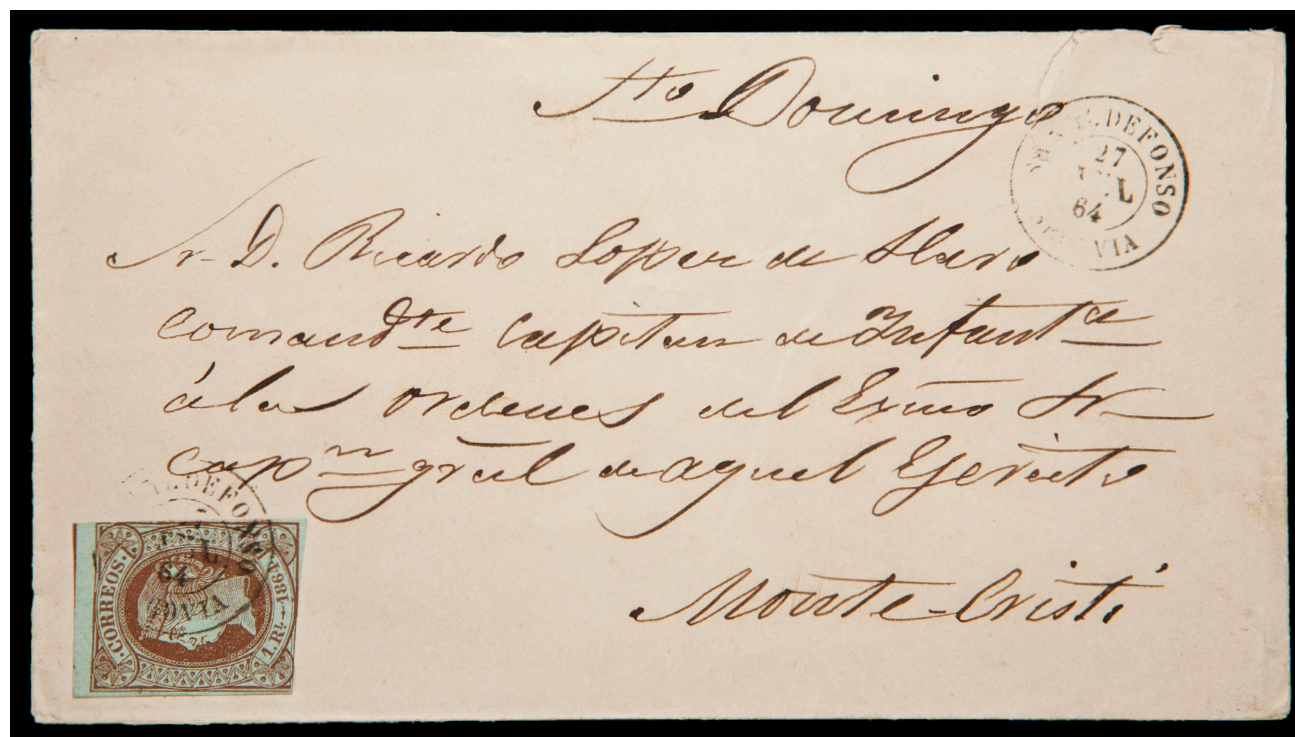 Sto Domingo
Sn ILDEFONSO
27
JUL
64
VIA
Sr D. Ricardo Lopez de Haro
comandte capitan de Infanta
á las ordenes del Exmo Sr
capnn gral de aquel Egercito
Monte-Cristi
ILDEFONSO
JUL
64
GOVIA
CORREOS
1864
1. Rl.